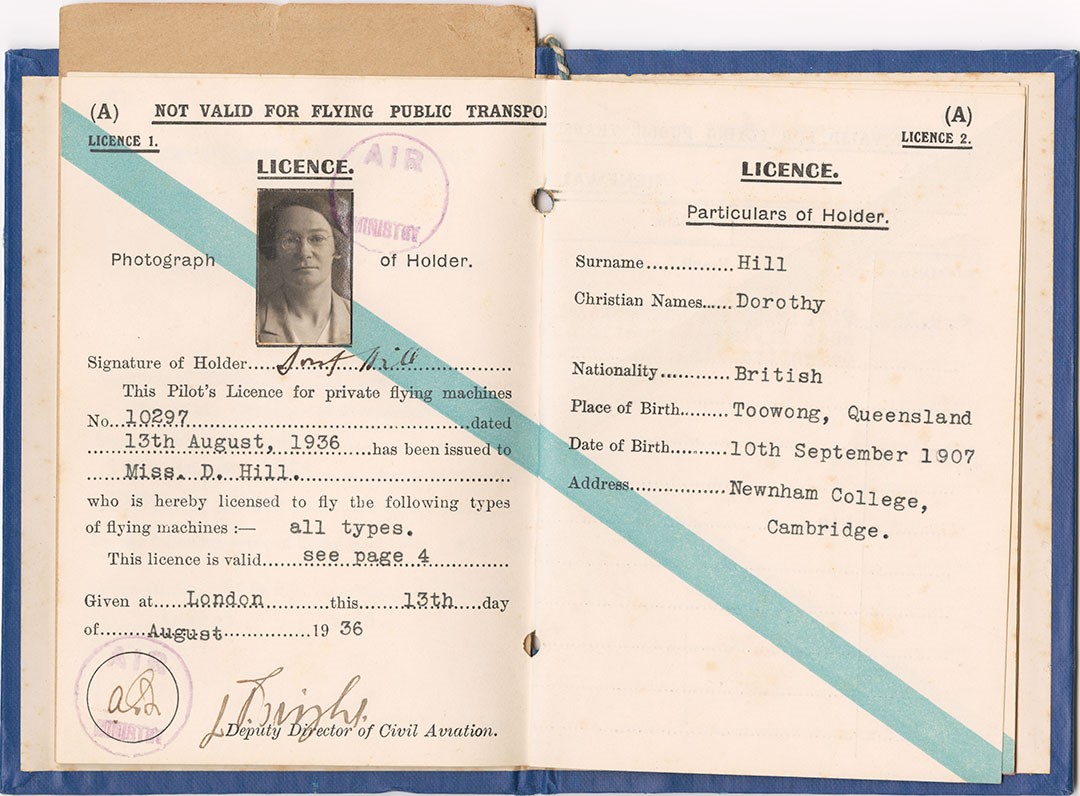 (A) NOT VALID FOR FLYING PUBLIC TRANSPO
LICENCE 1.
LICENCE.
AIR
MINISTRY
Photograph of Holder.
Signature of Holder.... Hill
This Pilot's Licence for private flying machines
No...10297...dated
13th August, 1936...has been issued to
Miss. D. Hill.
who is hereby licensed to fly the following types
of flying machines :— all types.
This licence is valid......see page 4
Given at.....London...........this.......13th....day
of........August...............19 36
AIR
MINISTRY
Deputy Director of Civil Aviation.
(A)
LICENCE 2.
LICENCE.
Particulars of Holder.
Surname...............Hill
Christian Names......Dorothy
Nationality............British
Place of Birth.........Toowong, Queensland
Date of Birth..........10th September 1907
Address................Newnham College,
Cambridge.